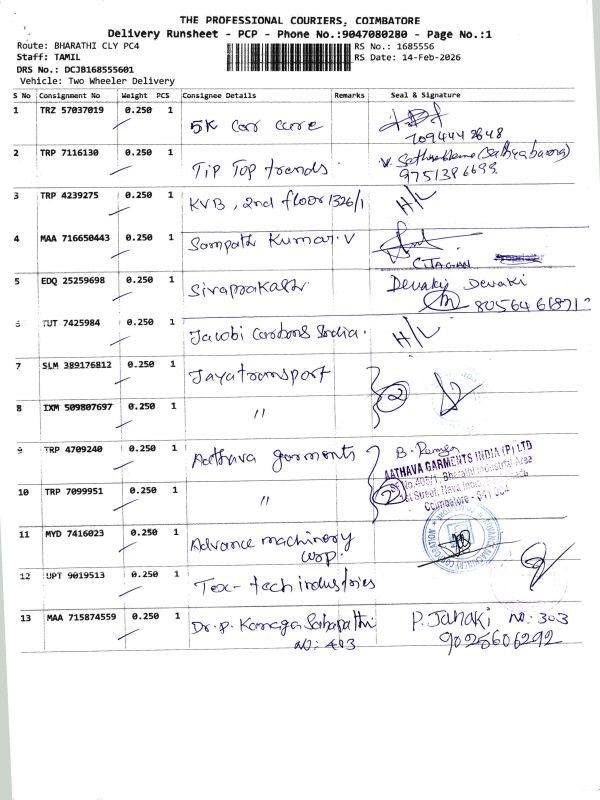 THE PROFESSIONAL COURIERS, COIMBATORE
Delivery Runsheet - PCP - Phone No.:9047080280 - Page No.:1
Route: BHARATHI CLY PC4
RS No.: 1685556
Staff: TAMIL
RS Date: 14-Feb-2026
DRS No.: DCJB168555601
Vehicle: Two Wheeler Delivery
S No Consignment No Weight PCS Consignee Details Remarks Seal & Signature
1 TRZ 57037019 0.250 1 5K car care
7094442648
2 TRP 7116130 0.250 1 Tip Top trends.
9751386699
3 TRP 4239275 0.250 1 KVB, 2nd floor 1326/1 H/L
4 MAA 716650443 0.250 1 Sampath Kumar. V
5 EDQ 25259698 0.250 1 Sivaprakash. Devaki Devaki
8056466871
6 TUT 7425984 0.250 1 Jacobi Carbons India. H/L
7 SLM 389176812 0.250 1 Jayatransport 2
8 IXM 509807697 0.250 1 "
9 TRP 4709240 0.250 1 Aathava garments B.
AATHAVA GARMENTS INDIA (P) LTD
Bharathi Industrial Area
10 TRP 7099951 0.250 1 " 2
Street, Nava
Coimbatore - 641 004
11 MYD 7416023 0.250 1 Advance machinery
corp.
ADVANCE MACHINERY CORPORATION
12 UPT 9019513 0.250 1 Tex-tech industries
13 MAA 715874559 0.250 1 Dr. P. Kanaga Sabapathi P. Janaki NO: 303
NO: 403 9025606292